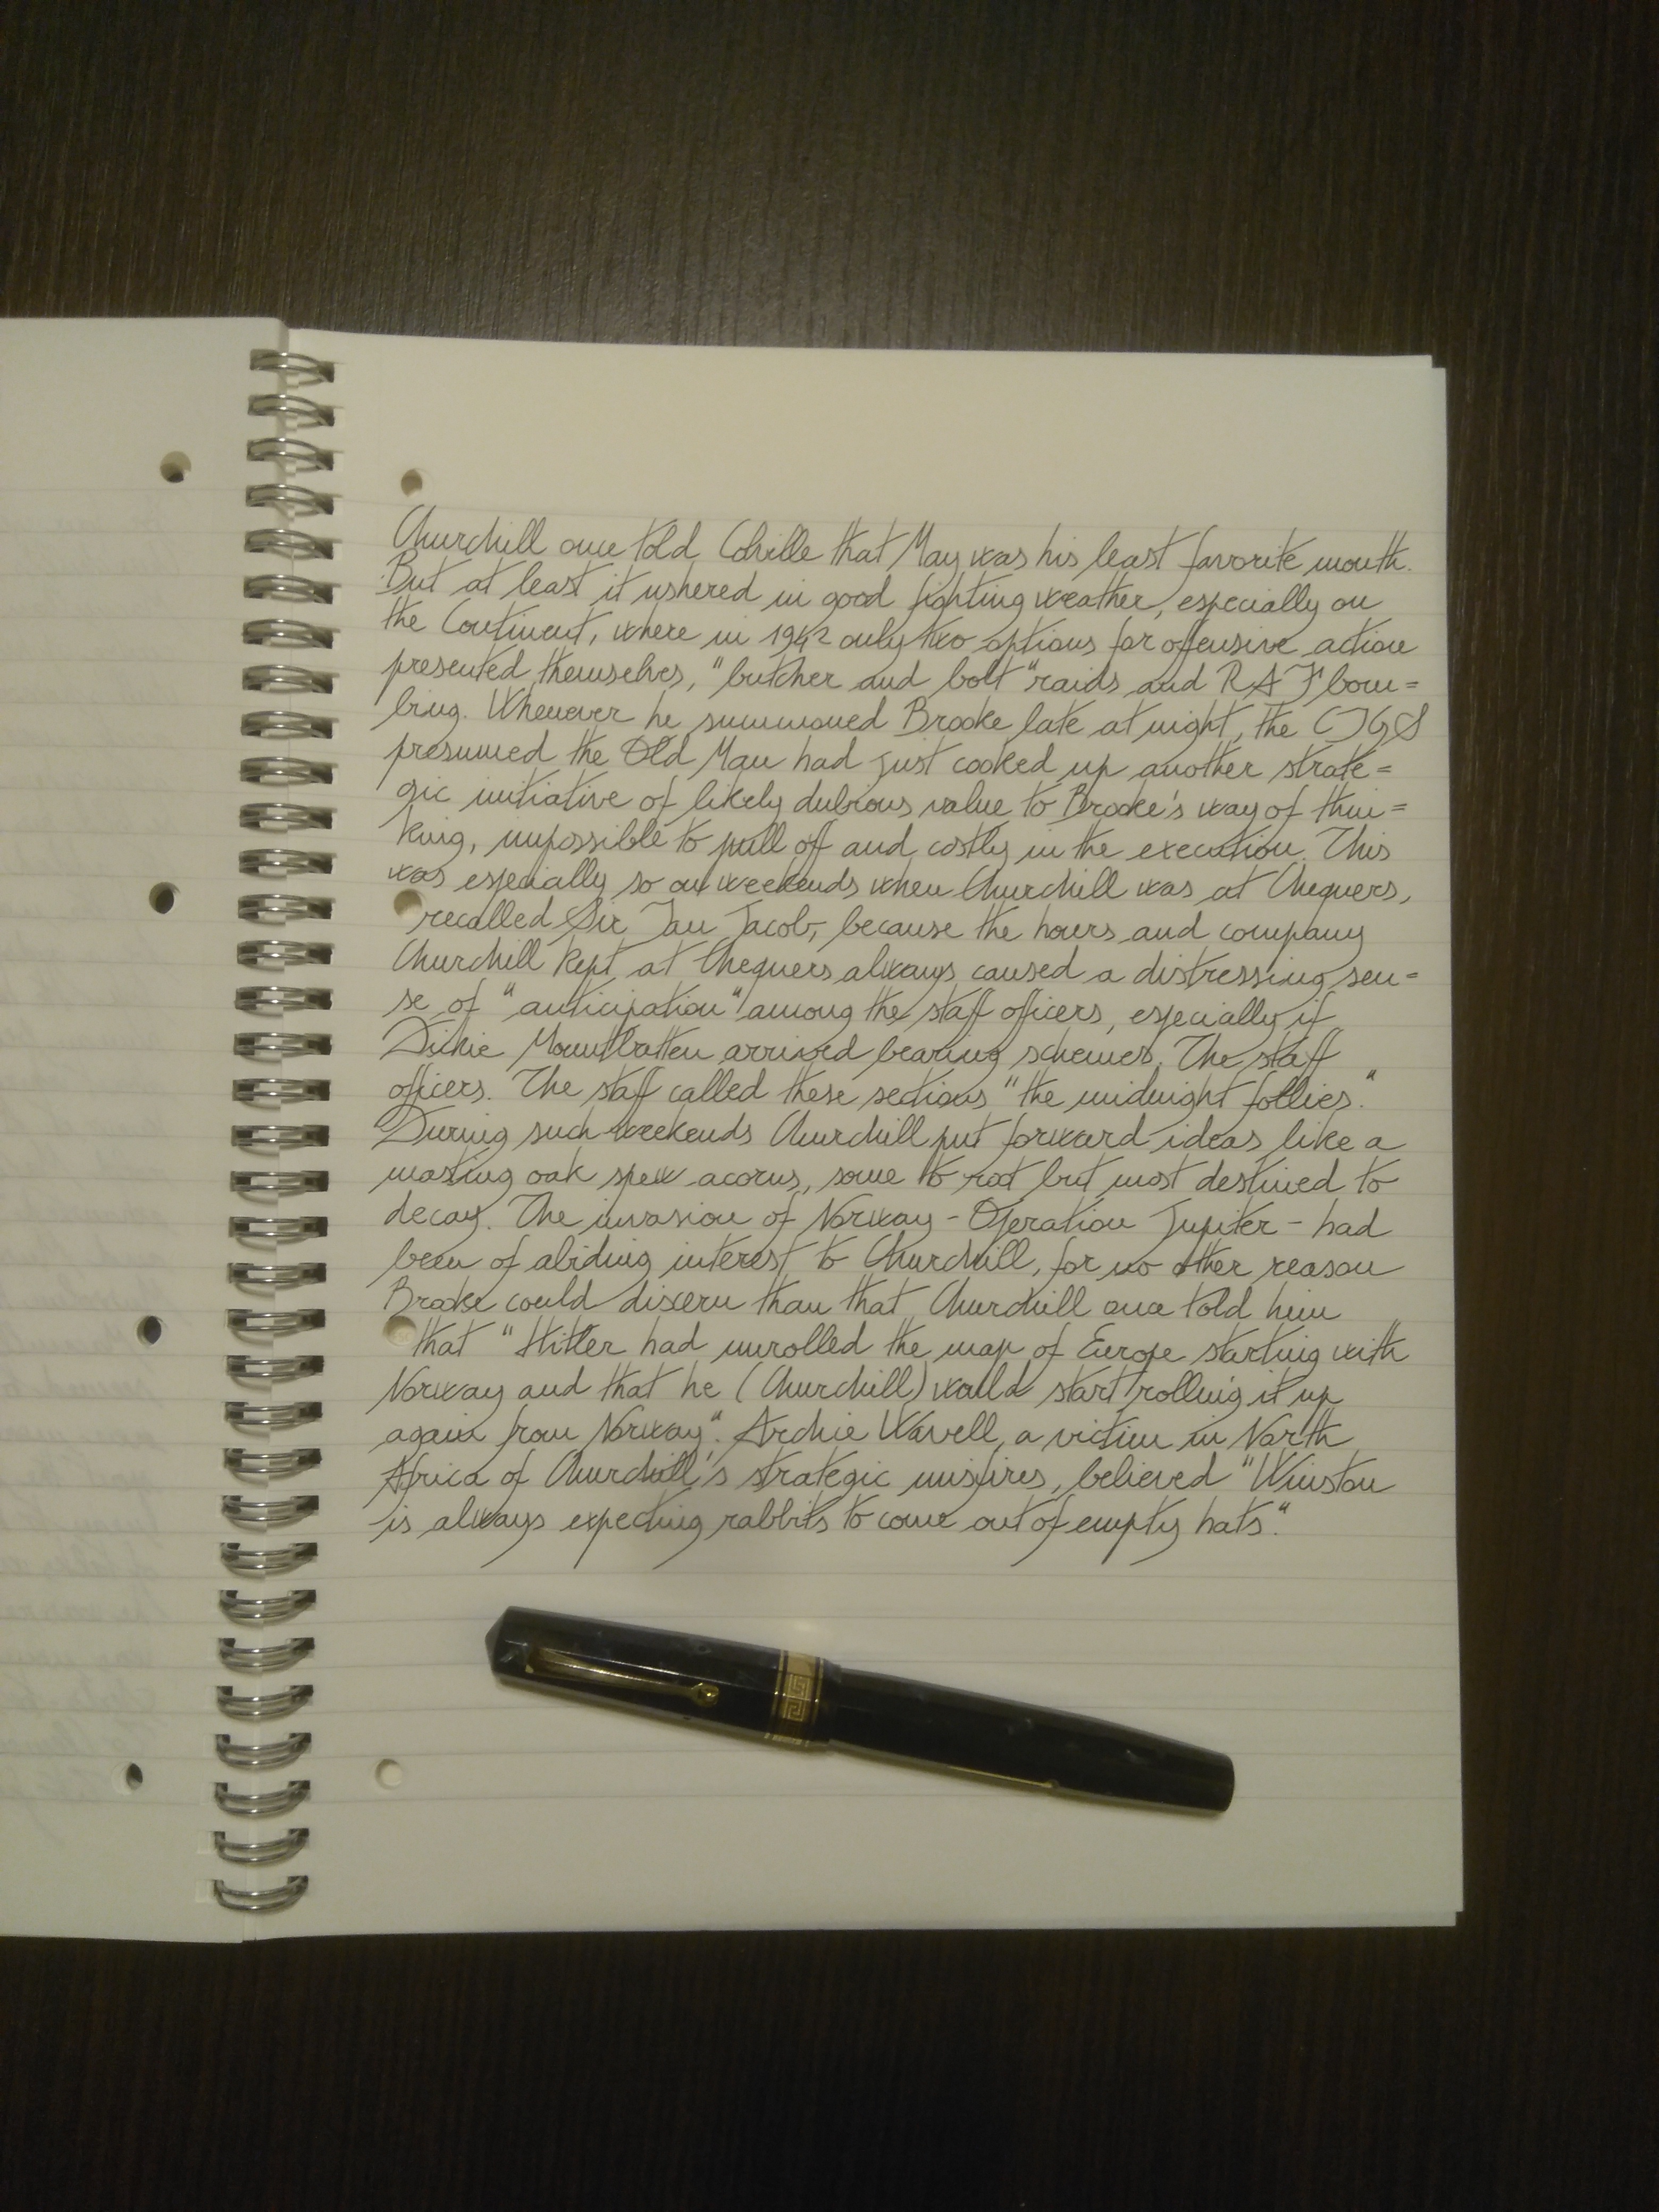 Churchill once told Colville that May was his least favorite month.
But at least it ushered in good fighting weather, especially on
the Continent, where in 1942 only two options for offensive action
presented themselves, "butcher and bolt" raids and RAF bom=
bing. Whenever he summoned Brooke late at night, the CIGS
presumed the Old Man had just cooked up another strate=
gic initiative of likely dubious value to Brooke's way of thin=
king, impossible to pull off and costly in the execution. This
was especially so on weekends when Churchill was at Chequers,
recalled Sir Ian Jacob, because the hours and company
Churchill kept at Chequers always caused a distressing sen=
se of "anticipation" among the staff officers, especially if
Dickie Mountbatten arrived bearing schemes. The staff
officers. The staff called these sections "the midnight follies."
During such weekends Churchill put forward ideas like a
masting oak spew acorns, some to root but most destined to
decay. The invasion of Norway - Operation Jupiter - had
been of abiding interest to Churchill, for no other reason
Brooke could discern than that Churchill once told him
that "Hitler had unrolled the map of Europe starting with
Norway and that he (Churchill) would start rolling it up
again from Norway". Archie Wavell, a victim in North
Africa of Churchill's strategic misfires, believed "Winston
is always expecting rabbits to come out of empty hats."